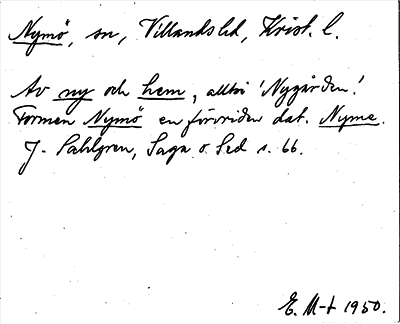 Nymö, sn, Villands hd, Krist. l.
Av ny och hem, alltså 'Nygården'.
Formen Nymö en förvriden dat. Nyme.
J. Sahlgren, Saga o Sed s. 66.
E. M-t 1950.